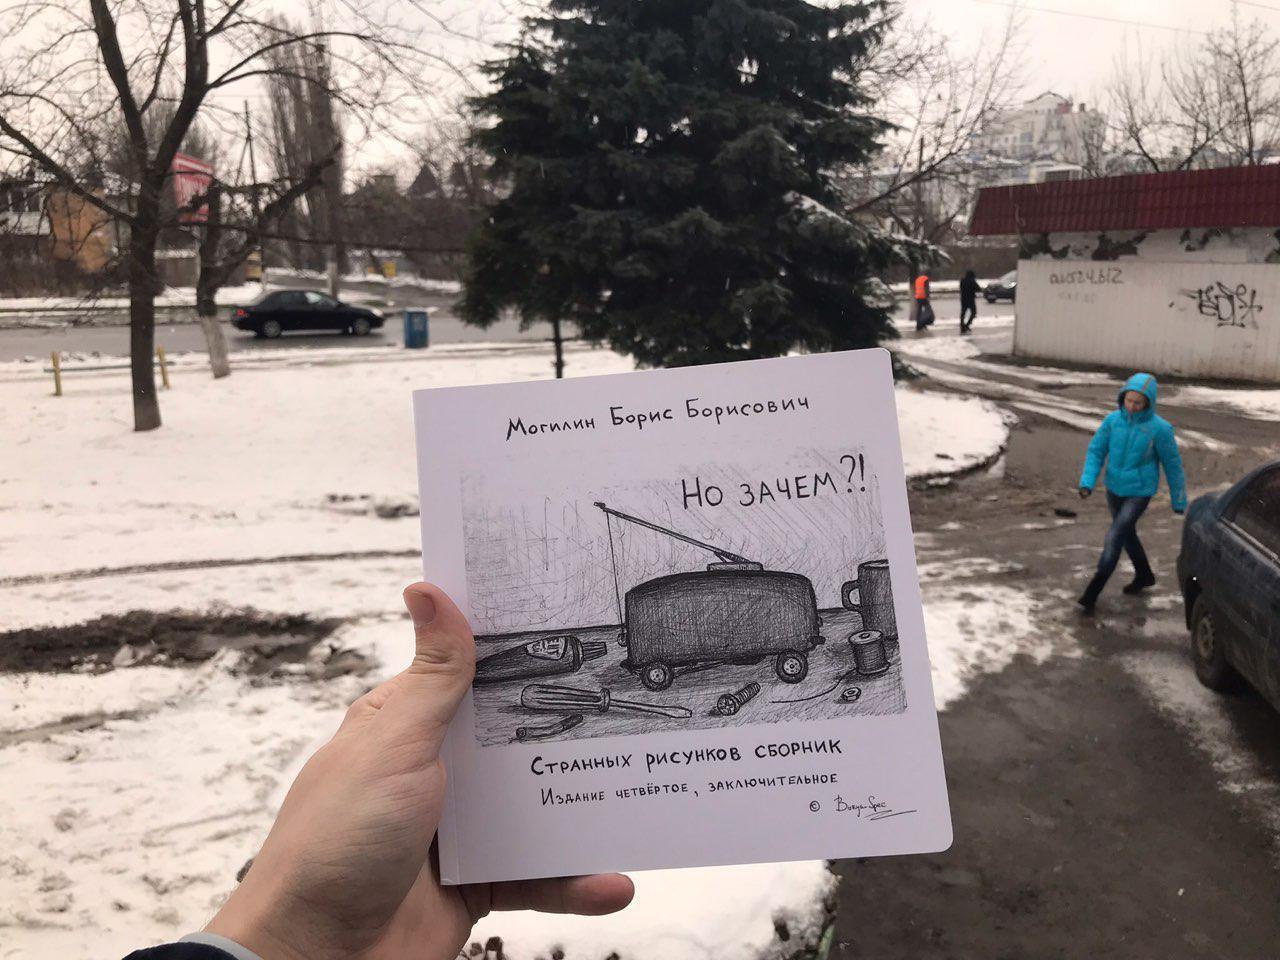 Могилин Борис Борисович
Но зачем?!
Странных рисунков сборник
Издание четвёртое, заключительное
© Borya Spec